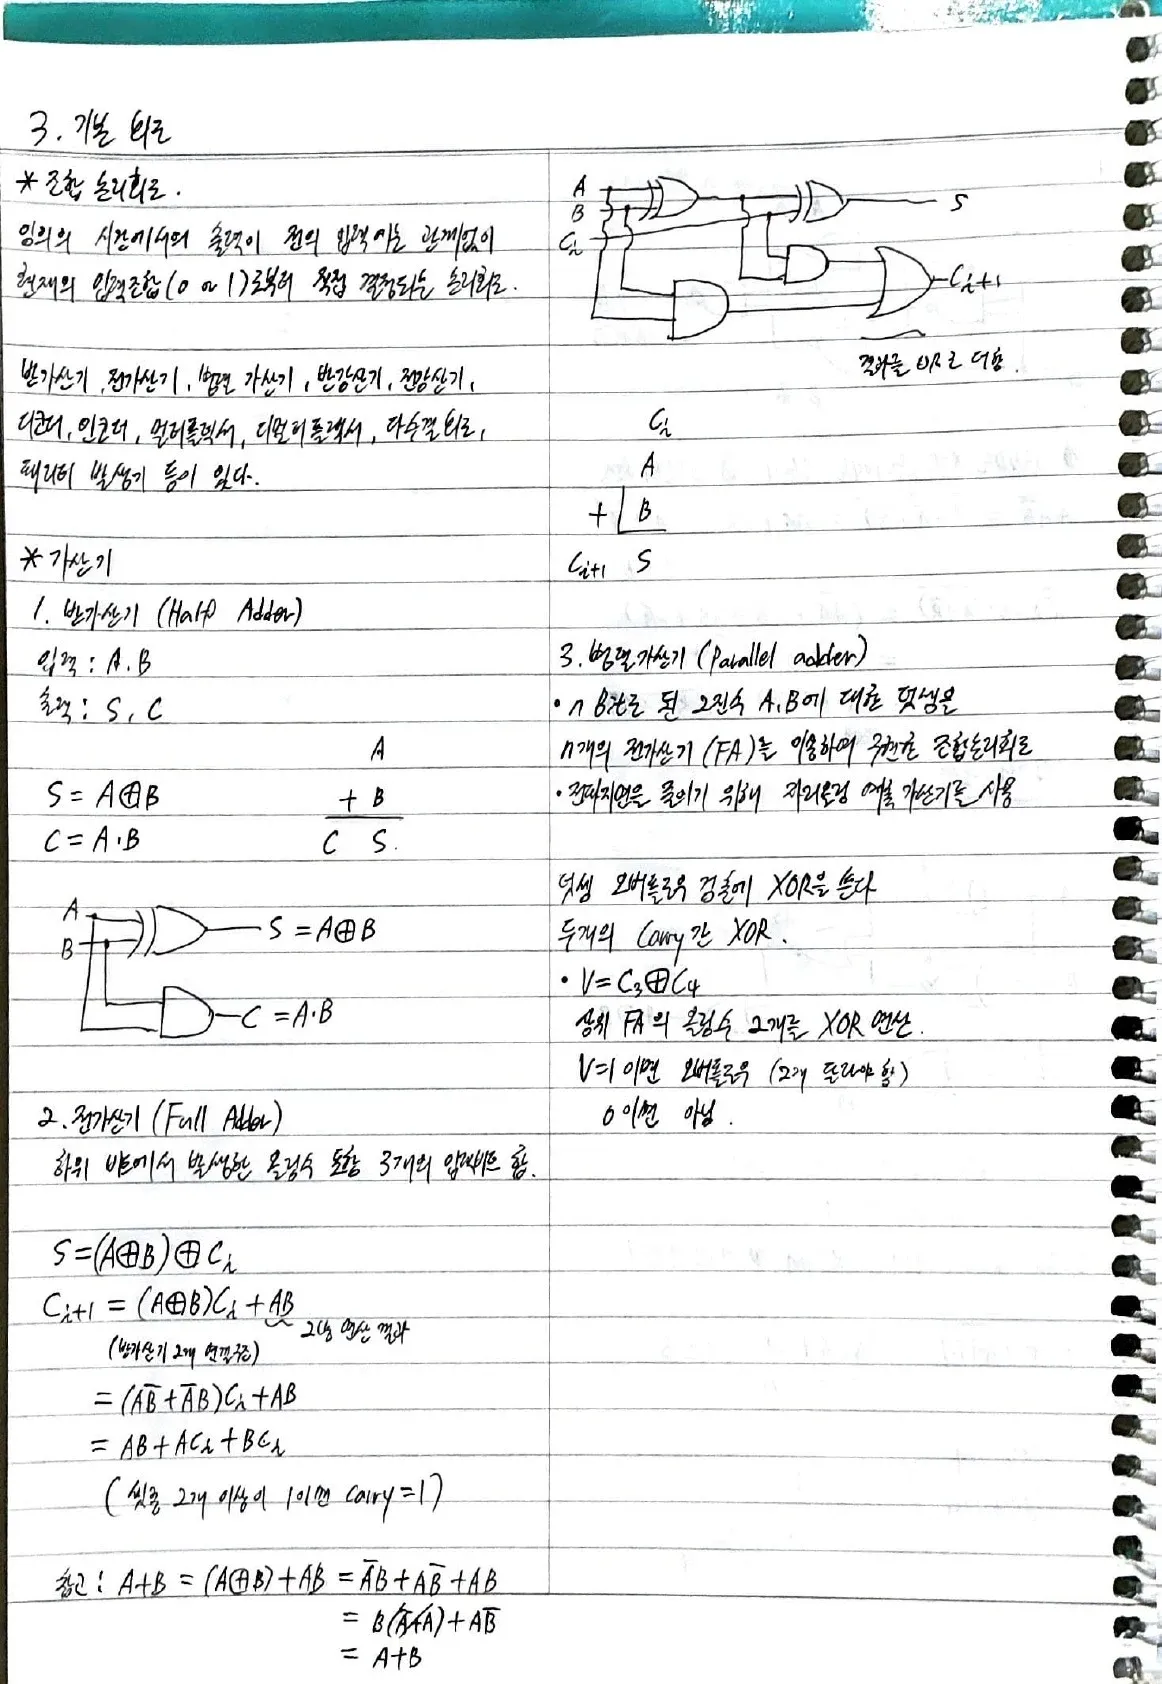 3. 기본 회로
* 조합 논리회로.
임의의 시간에서의 출력이 전의 입력에는 관계없이
현재의 입력조합(0 or 1)로부터 직접 결정되는 논리회로.
반가산기, 전가산기, 병렬 가산기, 반감산기, 전감산기,
디코더, 인코더, 멀티플렉서, 디멀티플렉서, 다수결 회로,
패리티 발생기 등이 있다.
* 가산기
1. 반가산기 (Half Adder)
입력 : A, B
출력 : S, C
A
+ B
C S.
S = A⊕B
C = A·B
A
B
S = A⊕B
C = A·B
2. 전가산기 (Full Adder)
하위 비트에서 발생한 올림수 포함 3개의 입력비트 합.
S = (A⊕B)⊕Ci
Ci+1 = (A⊕B)Ci + AB
연산 결과
(반가산기 2개 연결구조)
= (AB̅ + A̅B)Ci + AB
= AB + ACi + BCi
(셋중 2개 이상이 1이면 Carry = 1)
참고 : A+B = (A⊕B) + AB = A̅B + AB̅ + AB
= B(A̅+A) + AB̅
= A+B
A
B
Ci
S
Ci+1
결과를 OR로 더함.
Ci
A
+ B
Ci+1 S
3. 병렬가산기 (Parallel adder)
· n Bit로 된 2진수 A, B에 대한 덧셈을
n개의 전가산기 (FA)를 이용하여 구현한 조합논리회로
· 전파지연을 줄이기 위해 자리올림 예측 가산기를 사용
덧셈 오버플로우 검출에 XOR을 쓴다
두개의 Carry간 XOR.
· V = C3⊕C4
상위 FA의 올림수 2개를 XOR 연산.
V=1 이면 오버플로우 (2개 달라야 함)
0 이면 아님.